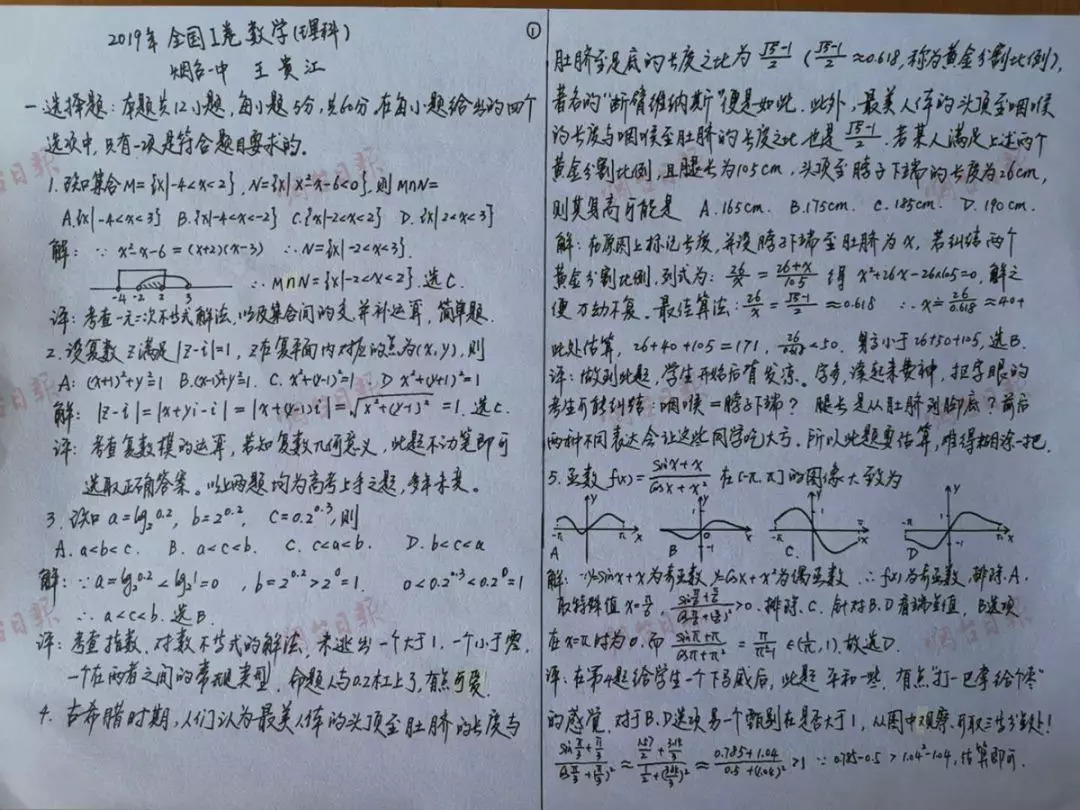 2019年 全国I卷数学(理科)
烟台一中 王贵江
一 选择题:本题共12小题,每小题5分,共60分.在每小题给出的四个
选项中,只有一项是符合题目要求的。
1. 已知集合M={x|-4<x<2}, N={x|x²-x-6<0},则M∩N=
A.{x|-4<x<3} B.{x|-4<x<-2} C.{x|-2<x<2} D.{x|2<x<3}
解: ∵ x²-x-6=(x+2)(x-3) ∴N={x|-2<x<3}.
-4 -2 2 3 ∴M∩N={x|-2<x<2}.选C.
评:考查一元二次不等式解法,以及集合间的交并补运算,简单题.
2. 设复数z满足|z-i|=1, z在复平面内对应的点为(x,y),则
A:(x+1)²+y²=1 B.(x-1)²+y²=1. C. x²+(y-1)²=1. D x²+(y+1)²=1
解: |z-i|=|x+yi-i|=|x+(y-1)i|=√x²+(y-1)² =1.选C.
评: 考查复数模的运算,若知复数几何意义,此题不动笔即可
选取正确答案。以上两题均为高考上手之题,多年未变。
3. 已知 a=log₂0.2, b=2^0.2, c=0.2^0.3,则
A. a<b<c. B. a<c<b. C. c<a<b. D. b<c<a
解: ∵a=log₂0.2<log₂1=0 , b=2^0.2>2^0=1. 0<0.2^0.3<0.2^0=1
∴ a<c<b.选B.
评:考查指数、对数不等式的解法,未逃出一个大于1,一个小于零,
一个在两者之间的常规类型.命题人与0.2杠上了,有点可爱.
4. 古希腊时期,人们认为最美人体的头顶至肚脐的长度与
①
肚脐至足底的长度之比为 (√5-1)/2 ( (√5-1)/2 ≈0.618,称为黄金分割比例),
著名的“断臂维纳斯”便是如此.此外,最美人体的头顶至咽喉
的长度与咽喉至肚脐的长度之比也是 (√5-1)/2 .若某人满足上述两个
黄金分割比例,且腿长为105cm,头顶至脖子下端的长度为26cm,
则其身高可能是 A.165cm. B.175cm. C.185cm. D.190cm.
解:在原图上标记长度,并设脖子下端至肚脐为x,若纠结两个
黄金分割比例,列式为: 26/x = (26+x)/105 得 x²+26x-26×105=0,解之
便万劫不复。最佳算法: 26/x = (√5-1)/2 ≈0.618 ∴x= 26/0.618 ≈40+
此处估算, 26+40+105=171, <50. 身高小于26+50+105,选B.
评:做到此题,学生开始后背发凉。字多,读起来费神,把字眼的
考生可能纠结:咽喉=脖子下端? 腿长是从肚脐到脚底?前后
两种不同表达会让这些同学吃大亏.所以此题要估算,难得糊涂一把.
5. 函数 f(x)= (sinx+x)/(cosx+x²) 在[-π,π]的图像大致为
A B C. D
解: ∵y=sinx+x为奇函数,y=cosx+x²为偶函数 ∴f(x)为奇函数,排除A.
>0.排除C.针对B.D看端点值,B选项
在x=π时为0,而 (sinπ+π)/(cosπ+π²) = π/(π²-1) ,故选D.
评:在第4题给学生一个下马威后,此题平和一些,有点“打一巴掌给个枣”
的感觉.对于B.D选项另一个甄别在是否大于1,
≈ (0.785+1.04)/(0.5+(1.04)²) >1 ∵0.785-0.5>1.04²-1.04,估算即可.
烟台日报